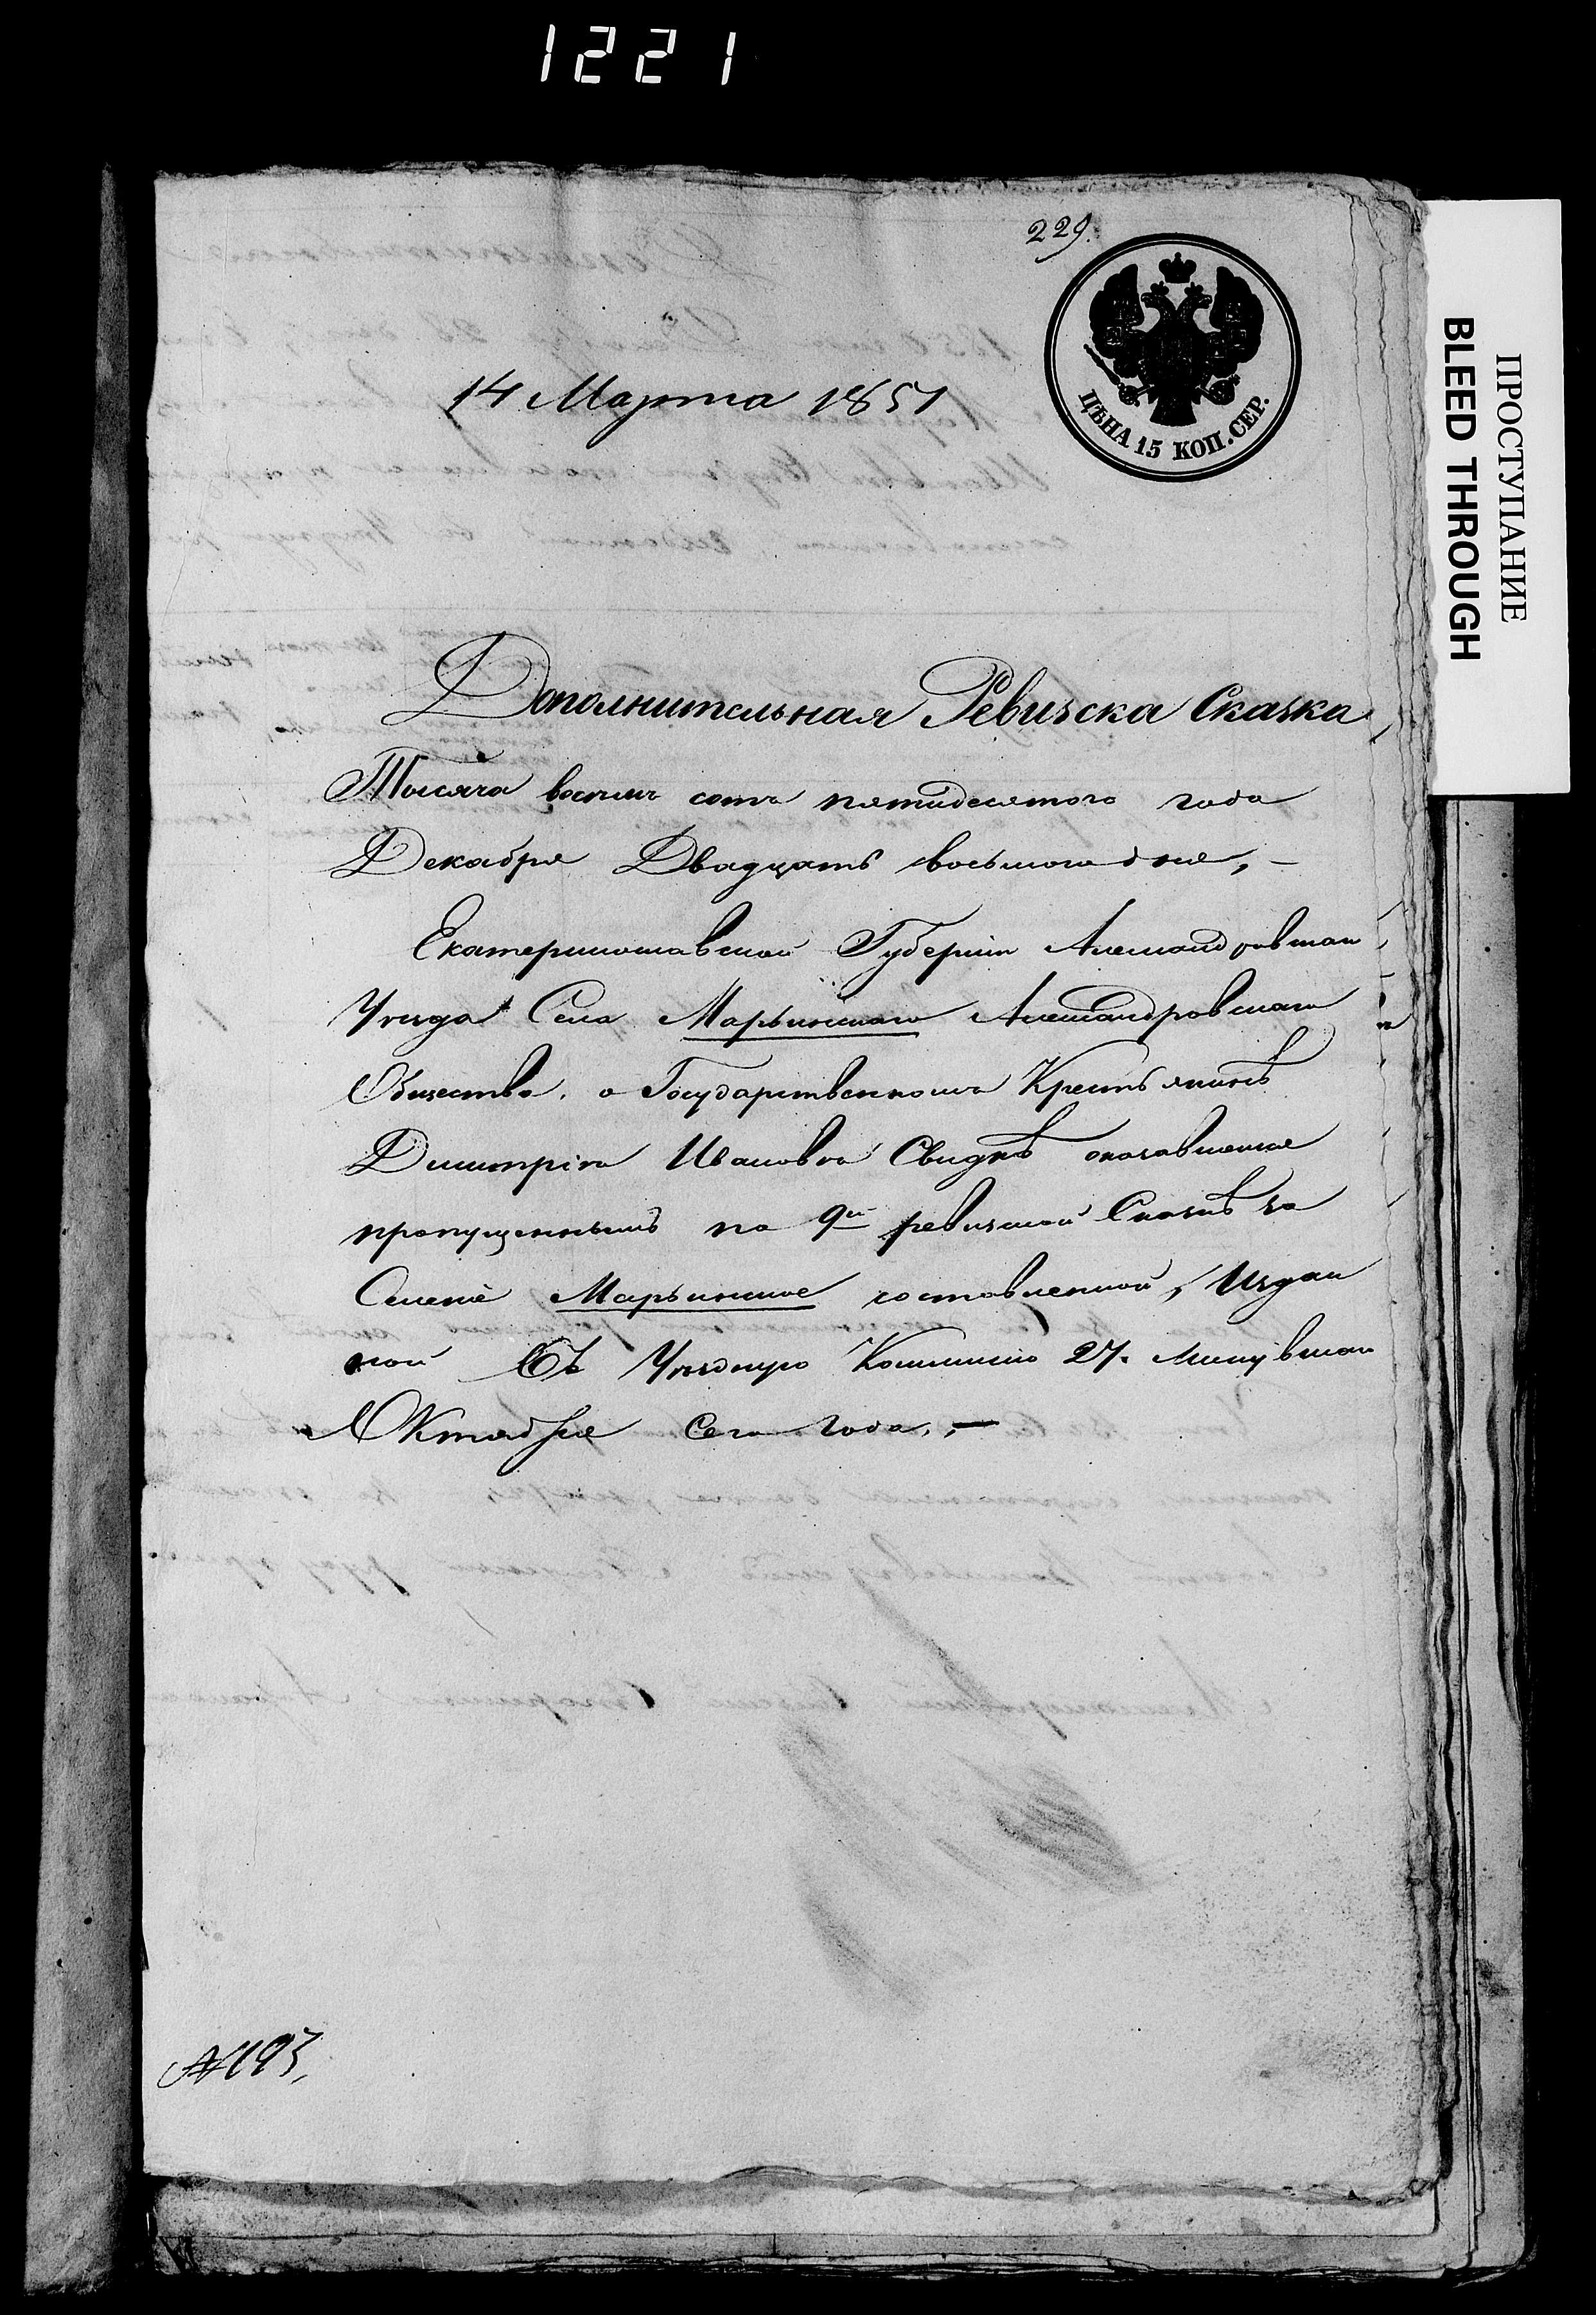 1221
229.
ЦѢНА 15 КОП. СЕР.
14 Марта 1851
ПРОСТУПАНИЕ
BLEED THROUGH
Дополнительная Ревизска Сказка,
Тысяча восемь сотъ пятидесятого года
Декабря Двадцать восьмого дня, –
Екатеринославской Губерніи Александровскаго
Уѣзда Села Марьинскаго Александровскаго
Общества, о Государственномъ Крестьянинѣ
Димитріѣ Ивановѣ Свидкѣ оказавшемся
пропущеннымъ по 9й ревизской Сказкѣ за
Селеніе Марьинское составленной, Издан
ной Въ Уѣздную Коммисію 27. минувшаго
Октября Сего года, –
№ 1193,